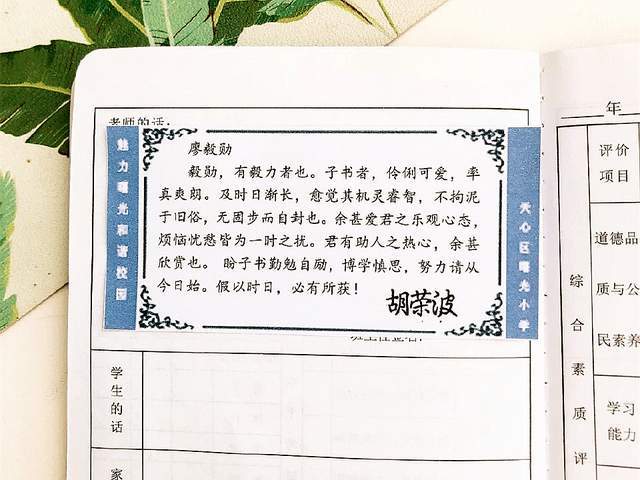 老师的话:
魅力曙光和谐校园
廖毅勋
毅勋，有毅力者也。子书者，伶俐可爱，率
真爽朗。及时日渐长，愈觉其机灵睿智，不拘泥
于旧俗，无固步而自封也。余甚爱君之乐观心态，
烦恼忧愁皆为一时之扰。君有助人之热心，余甚
欣赏也。 盼子书勤勉自励，博学慎思，努力请从
今日始。假以时日，必有所获！
胡荣波
天心区曙光小学
学生的话
家
年
评价
项目
综合素质评
道德品
质与公
民素养
学习
能力